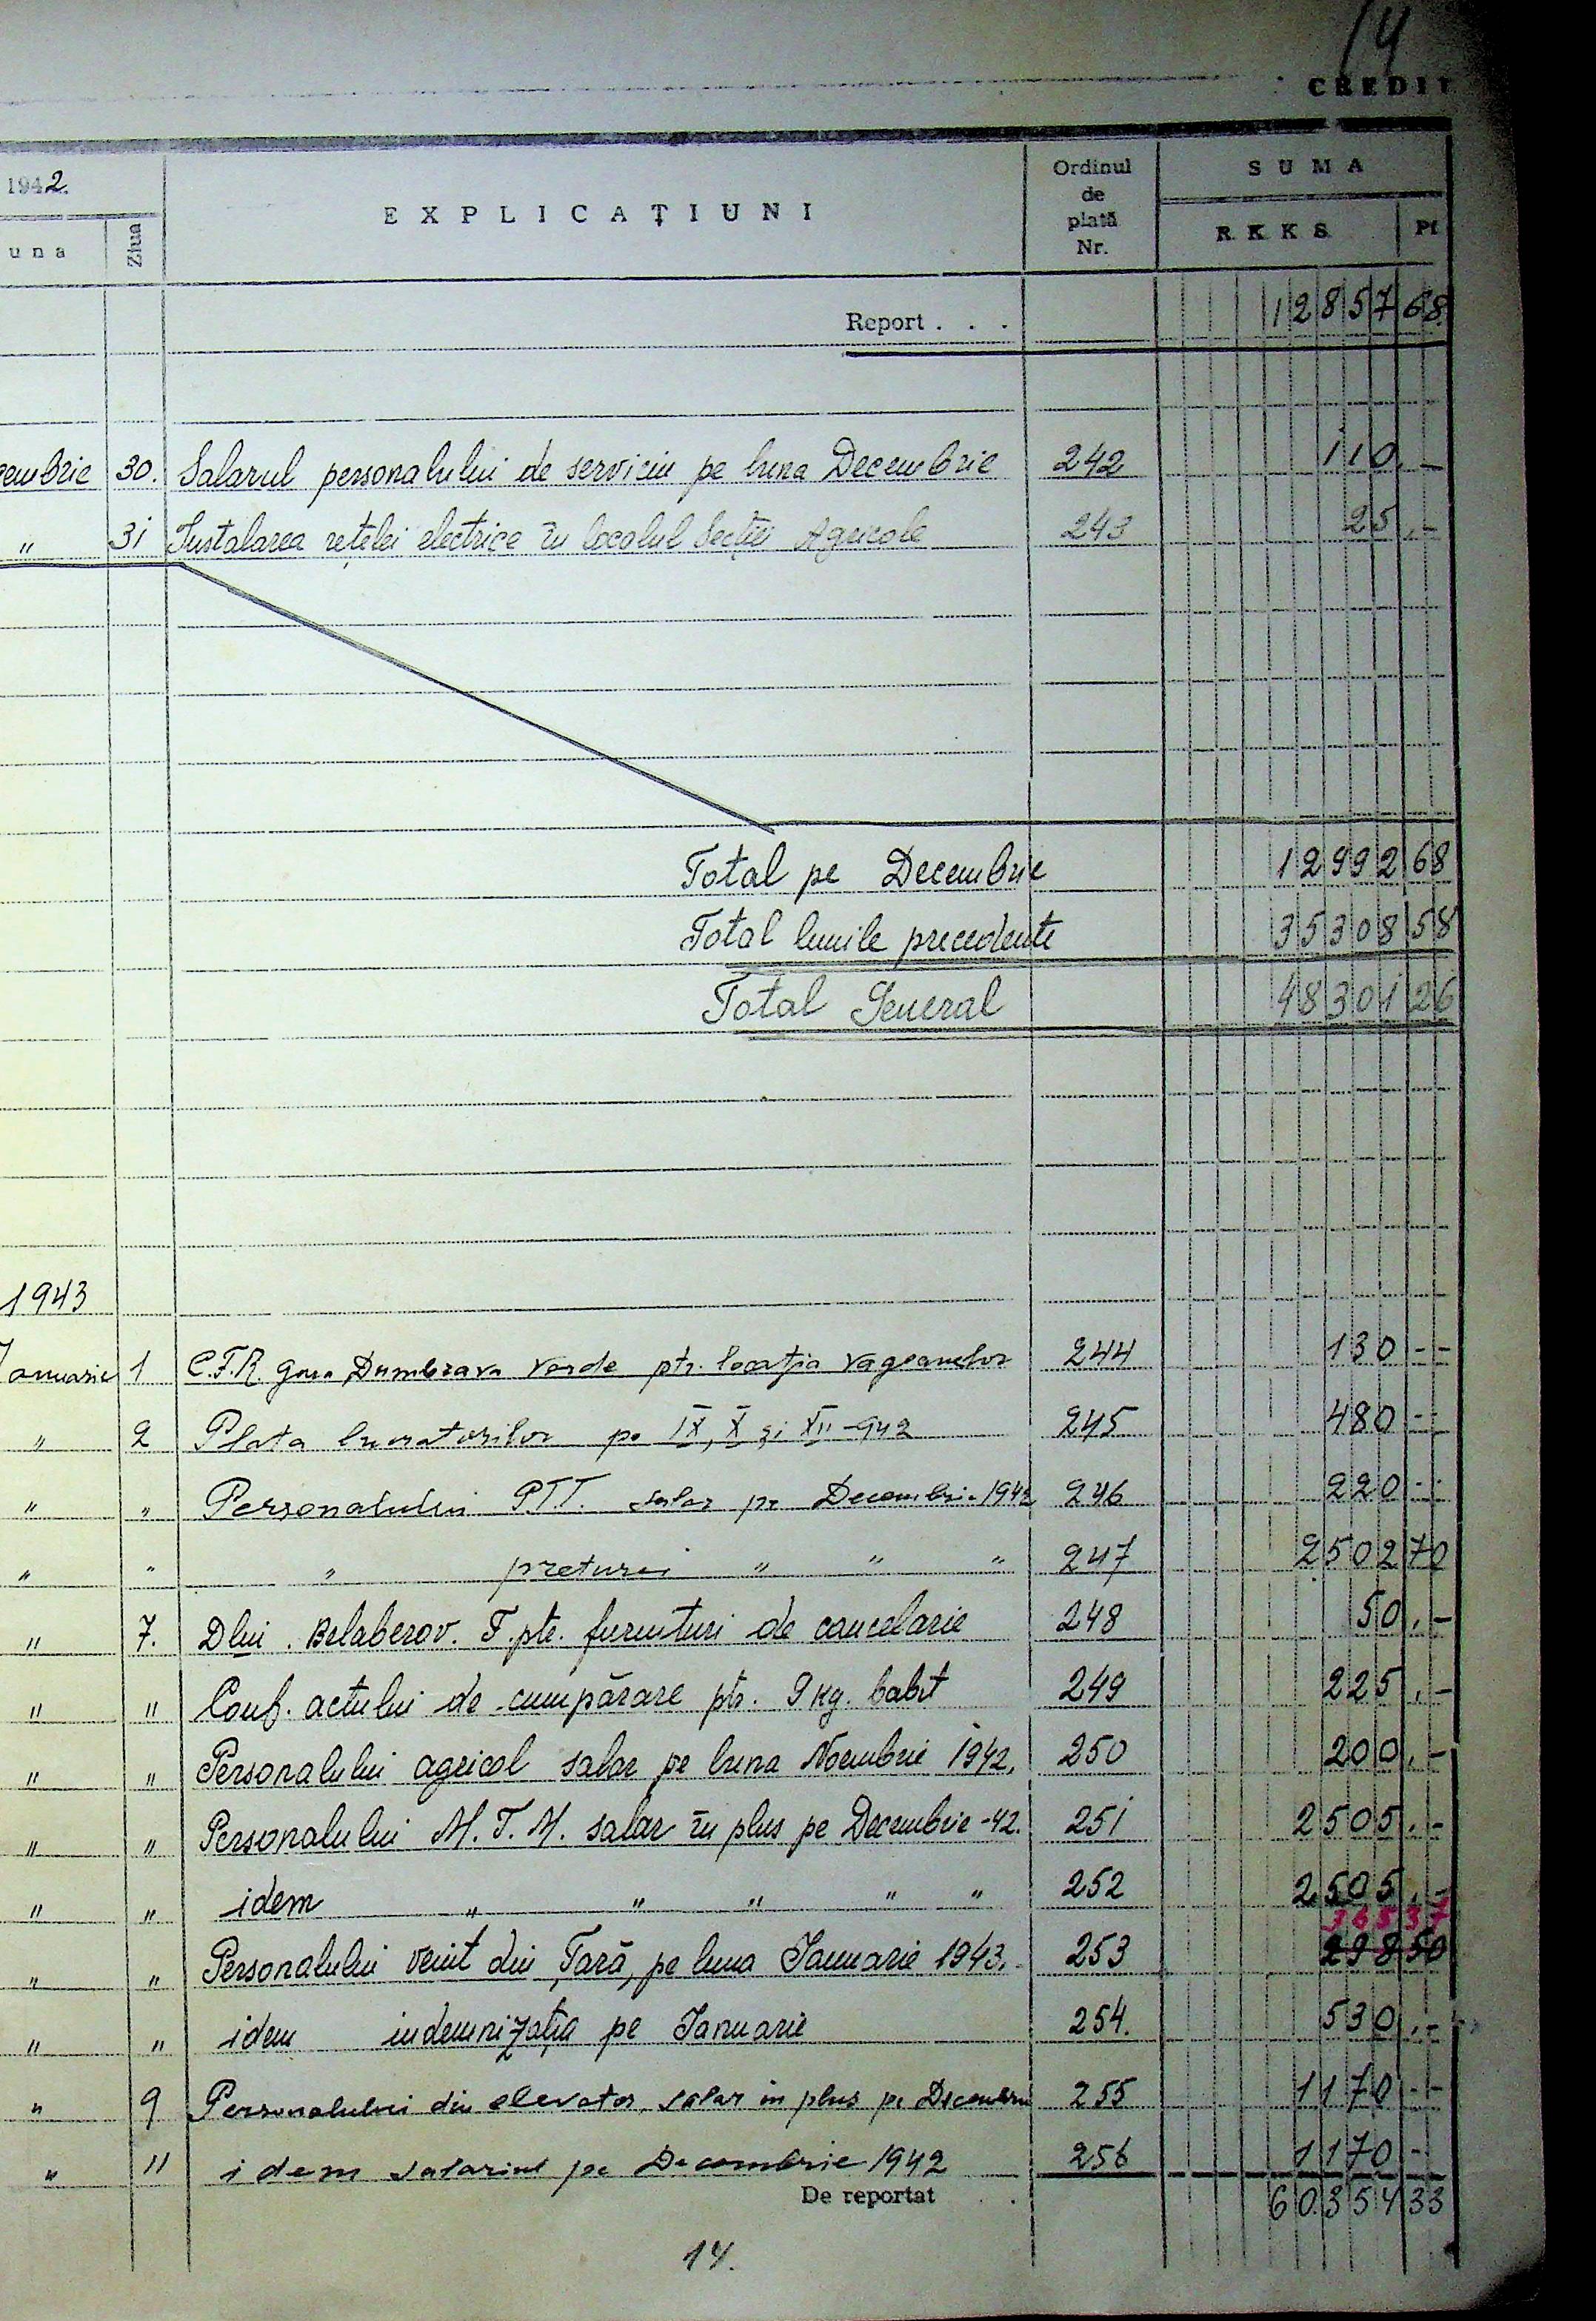 14
CREDIT
1942.
una
Ziua
EXPLICAȚIUNI
Ordinul
de
plată
Nr.
SUMA
RKKS Pf
Report . . . 12857 68
cembrie 30. Salarul personalului de serviciu pe luna Decembrie 242 110.–
" 31 Instalarea rețelei electrice în localul Secției Agricole 243 25.–
Total pe Decembrie 12992 68
Total lunile precedente 35308 58
Total General 48301 26
1943
Ianuarie 1 C.F.R. gara Dumbrava Verde ptr. locația vagoanelor 244 130 --
" 2 Plata lucratorilor pe IX, X și XII-942 245 480 --
" " Personalului PTT. salar pe Decembrie 1942 246 220 --
" " " preturei " " " 247 2502 70
" 7. Dlui. Belaberov. F. ptr. furnituri de cancelarie 248 50.–
" " Conf. actului de cumpărare ptr. 9 kg. babit 249 225.–
" " Personalului agricol salar pe luna Noembrie 1942. 250 200.–
" " Personalului M.T.M. salar în plus pe Decembrie -42. 251 2505.–
" " idem " " " " 252 2505.–
365 37
" " Personalului venit din Țară, pe luna Ianuarie 1943. 253 298 50
" " idem indemnizația pe Ianuarie 254. 530.–
" 9 Personalului din elevator, salar in plus pe Decembrie 255 1170 --
" 11 idem salariul pe Decembrie 1942 256 1170 -
De reportat . . 60354 33
14.